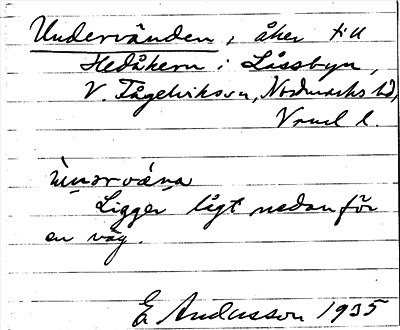 Undervänden, åker till
Hedåkern i Låssbyn,
V. Fågelviks sn, Nordmarks hd,
Vrml l.
Ligger lågt nedanför
en väg.
E Andersson 1935